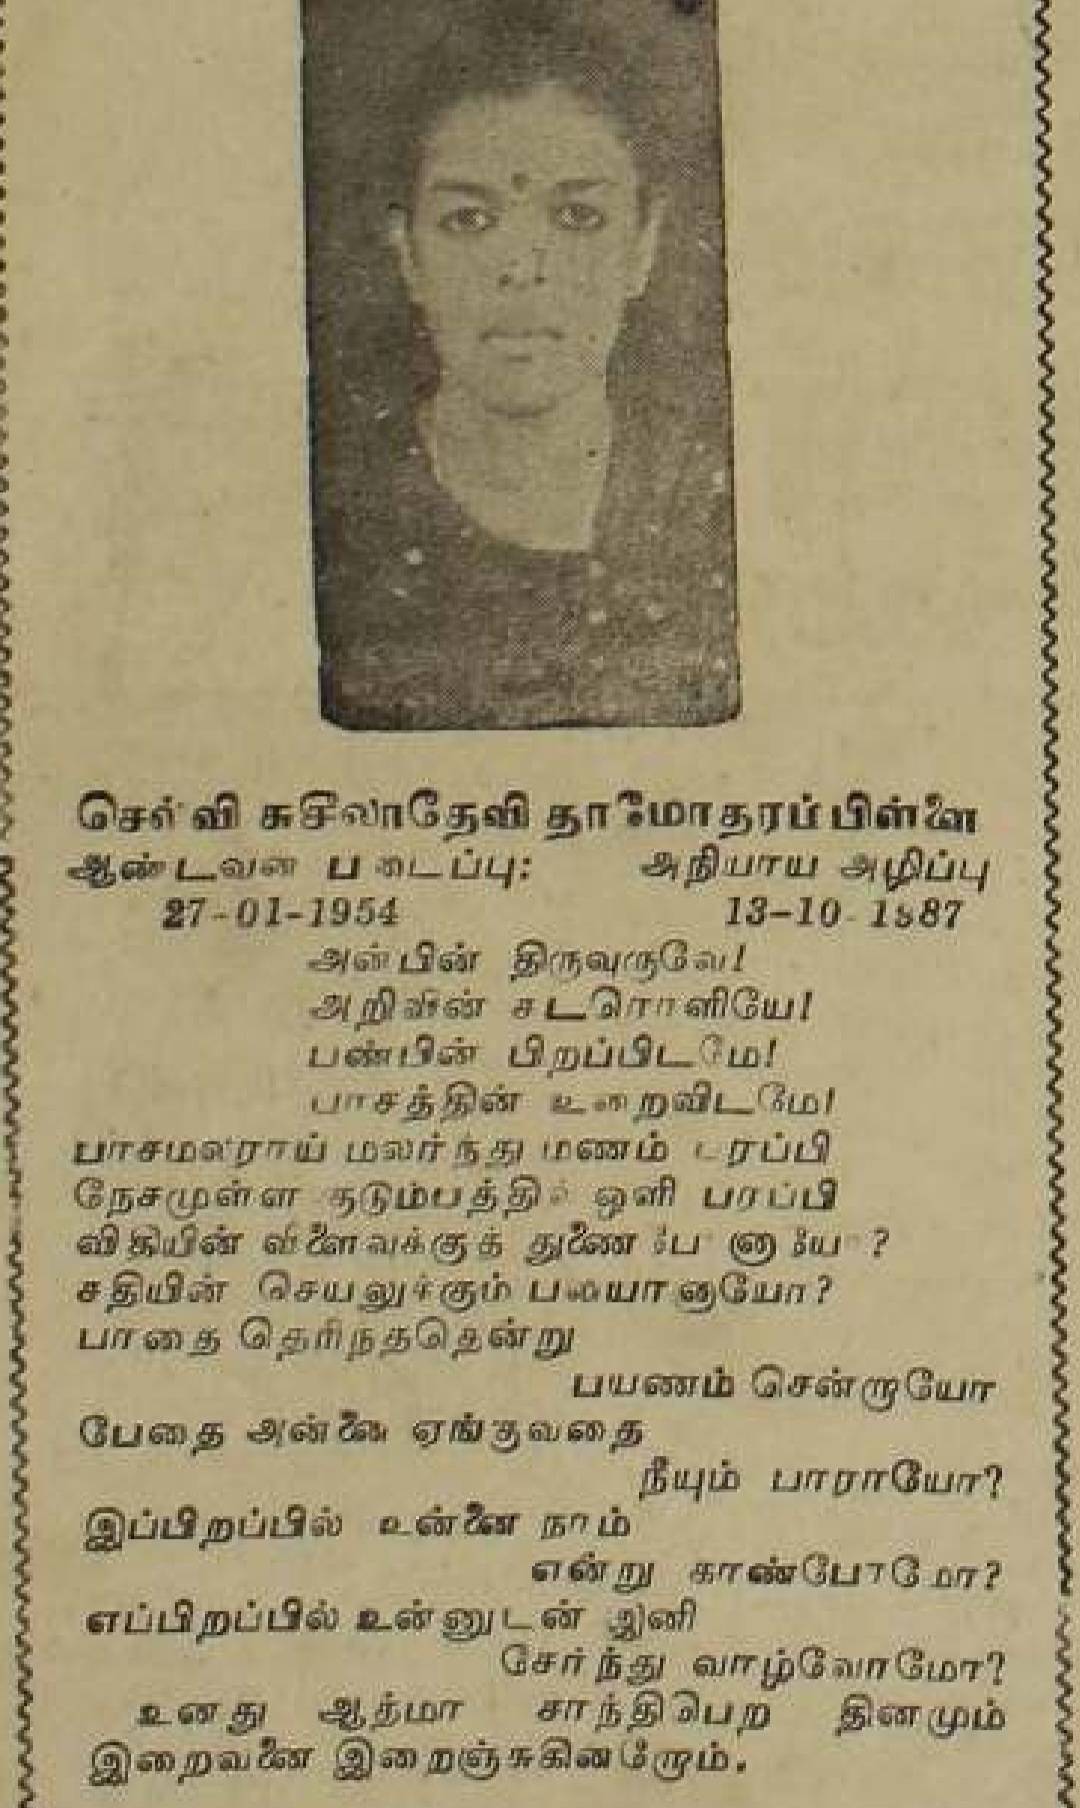 செல்வி சுசீலாதேவி தாமோதரம்பிள்ளை
ஆண்டவன் படைப்பு: அநியாய அழிப்பு
27-01-1954 13-10-1987
அன்பின் திருவுருவே!
அறிவின் சுடரொளியே!
பண்பின் பிறப்பிடமே!
பாசத்தின் உறைவிடமே!
பாசமலராய் மலர்ந்து மணம் பரப்பி
நேசமுள்ள குடும்பத்தில் ஒளி பரப்பி
விதியின் விளைவுக்குத் துணை போனாயோ?
சதியின் செயலுக்கும் பலியானாயோ?
பாதை தெரிந்ததென்று
பயணம் சென்றாயோ
பேதை அன்னை ஏங்குவதை
நீயும் பாராயோ?
இப்பிறப்பில் உன்னை நாம்
என்று காண்போமோ?
எப்பிறப்பில் உன்னுடன் இனி
சேர்ந்து வாழ்வோமோ?
உனது ஆத்மா சாந்திபெற தினமும்
இறைவனை இறைஞ்சுகின்றோம்.